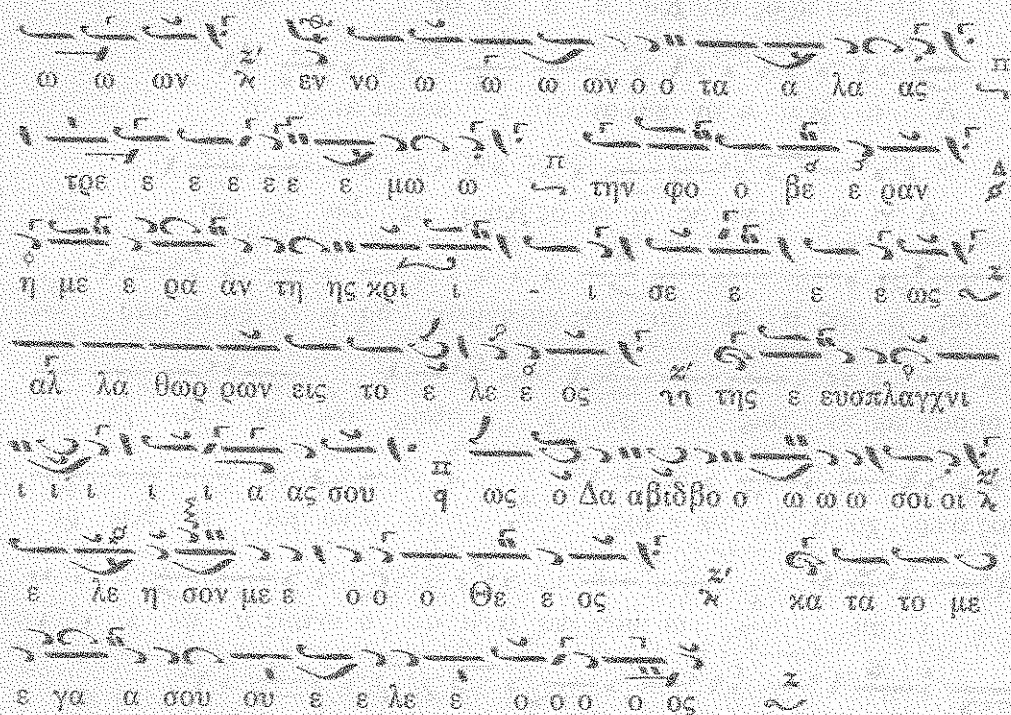 ω ω ων εν νο ω ω ω ων ο ο τα α λα ας
τρε ε ε ε ε ε ε μω ω την φο ο βε ε ραν
η με ε ρα αν τη ης κρι ι - ι σε ε ε ε ως
αλ λα θωρ ρων εις το ε λε ε ος της ε ευσπλαγχνι
ι ι ι ι ι α ας σου ως ο Δα αβιδβο ο ω ω ω σοι οι
ε λε η σον με ε ο ο ο Θε ε ος κα τα το με
ε γα α σου ου ε ε λε ε ο ο ο ο ος